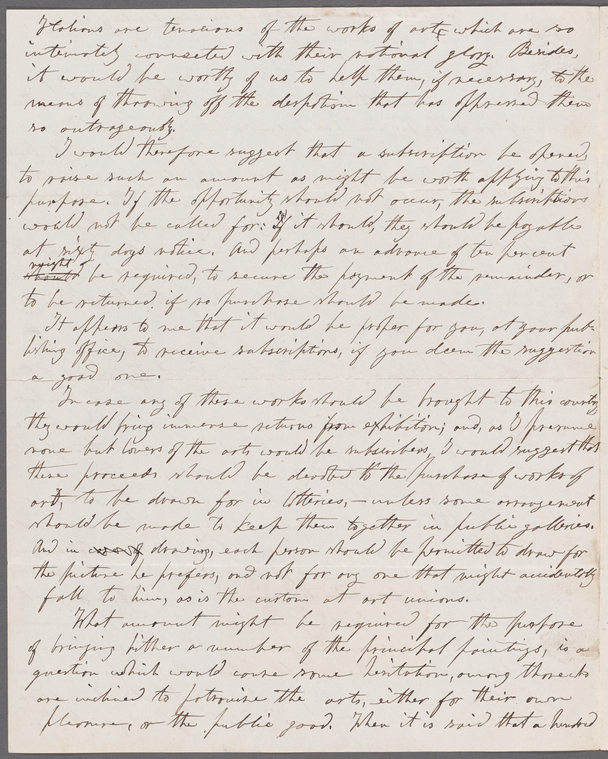 Italians are tenacious of the works of art, which are so
intimately connected with their national glory. Besides,
it would be worthy of us to help them, if necessary, to the
means of throwing off the despotism that has oppressed them
so outrageously.
I would therefore suggest that a subscription be opened,
to raise such an amount as might be worth applying to this
purpose. If the opportunity should not occur, the subscriptions
would not be called for: If it should, they should be payable
at sixty days notice. And perhaps an advance of ten per cent
might
should be required, to secure the payment of the remainder, or
to be returned, if no purchase should be made.
It appears to me that it would be proper for you, at your pub-
lishing office, to receive subscriptions, if you deem the suggestion
a good one.
In case any of these works should be brought to this country,
they would bring immense returns from exhibition; and, as I presume
none but lovers of the arts would be subscribers, I would suggest that
these proceeds should be devoted to the purchase of works of
art, to be drawn for in lotteries, — unless some arrangement
should be made to keep them together in public galleries.
And in drawing, each person should be permitted to draw for
the picture he prefers, and not for any one that might accidentally
fall to him, as is the custom at art unions.
What amount might be required for the purpose
of bringing hither a number of the principal paintings, is a
question which would cause some hesitation, among those who
are inclined to patronise the arts, either for their own
pleasure, or the public good. When it is said that a hundred